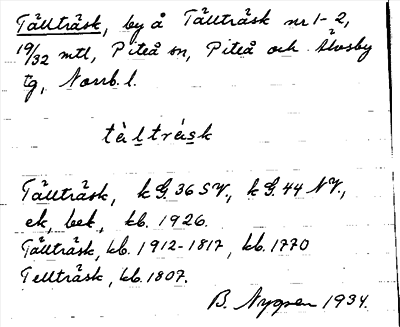 Tällträsk, by å Tällträsk nr 1-2,
19/32 mtl, Piteå sn, Piteå och Älvsby
tg, Norrb. l.
tàlträsk
Tällträsk, k G. 36 SV., k G. 44 NV.,
ek, bek, kb. 1926.
Tällträsk, kb. 1912-1817, kb. 1770
Tellträsk, kb. 1807.
B. Nygren 1934.